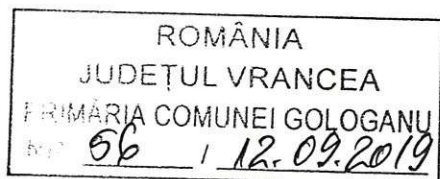 ROMÂNIA
JUDEȚUL VRANCEA
PRIMĂRIA COMUNEI GOLOGANU
56 / 12.09.2019